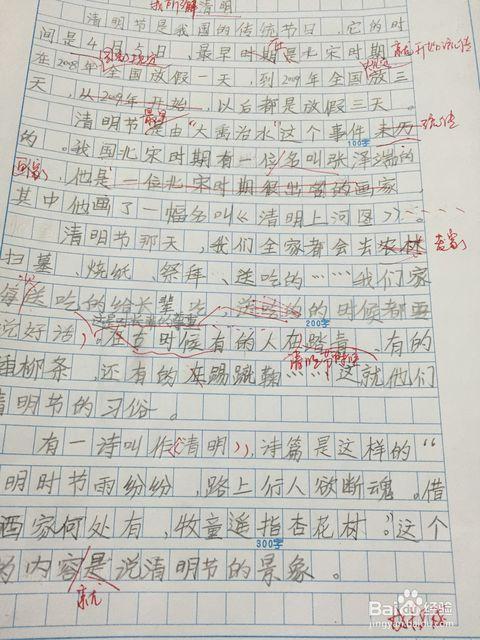 我所了解清明
清明节是我国的传统节日，它的时
间是4月5日，最早时期是北宋时期就开始流传
在2008年全国放假一天，到2009年全国放三
天，从2009年开始，以后都是放假三天。
清明节是由"大禹治水"这个事件来历流传
100字
的。我国北宋时期有一位名叫张泽端的
画家，他是一位北宋时期很出名的画家
其中他画了一幅名叫《清明上河图》
清明节那天，我们全家都会去农林老家
扫墓、烧纸、祭拜、送吃的……我们家
每送吃的给长辈 的时候都要
200字
说好话。在古时候有的人在踏青、有的
清明节时候
插柳条，还有的在踢蹴鞠……这就他们
清明节的习俗。
有一诗叫作《清明》，诗篇是这样的"
明时节雨纷纷，路上行人欲断魂。借
酒家何处有，牧童遥指杏花村。"这个
300字
内容是说清明节的景象。
就
Baidu 经验
jingyan.baidu.com